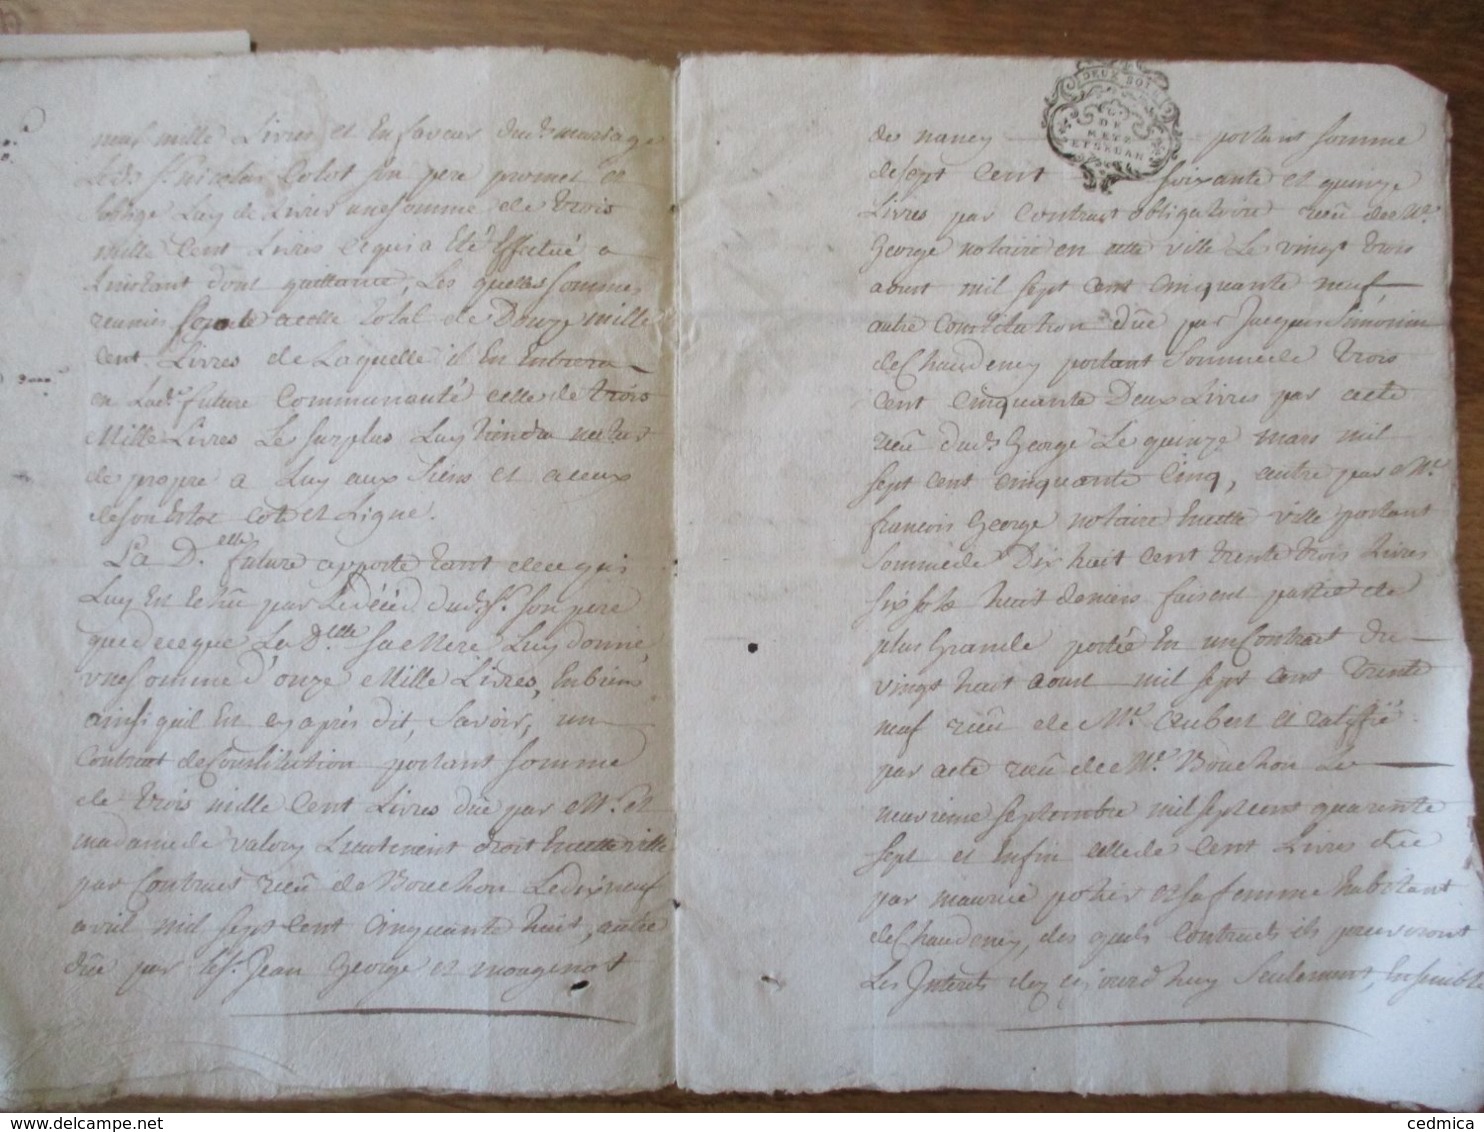 neuf mille Livres et En faveur dud. mariage
Led. Sr. Nicolas Colot son pere promet et
soblige Luy de Livrer une somme de trois
mille cent Livres ce qui a Eté Effectué a
Linstant dont quittance, Les quelles sommes
reunies celle total de Douze mille
cent Livres de Laquelle il En Entrera
en Lad. future Communauté celle de trois
Mille Livres Le surplus Luy tiendra nature
de propre a Luy aux siens et a ceux
de son Estoc Coté et Ligne.
La D.elle future apporte tant de ce qui
Luy En Echû par Le décéd dud. Sr. son pere
que de ce que La D.elle sa Mere Luy donne
une somme d'onze Mille Livres, En biens
ainsi quil En cy après dit, Savoir, un
Contract de Constitution portant somme
de trois mille Cent Livres due par Mr. et
madame de valory Lieutenant de roit En cette ville
par Contract reçu de Bouchon Le dix neuf
avril mil sept cent Cinquante huit, autre
dûe par le Sr. Jean George et mougenot
DEUX SOLS
G.
DE
METZ
ET SEDAN
de nancy portant somme
de sept cent soixante et quinze
Livres par Contract obligatoire reçu de Me.
George notaire en cette ville Le vingt trois
aoust mil sept cent cinquante neuf,
autre Constitution dûe par Jacques Simonin
de Chaudeney portant Somme de trois
cent cinquante Deux Livres par acte
reçu dud. George Le quinze mars mil
sept cent cinquante cinq, autre par Me.
francois George notaire En cette ville portant
Somme de Dix huit cent trente trois Livres
six sols huit deniers faisant partie de
plus Grande portée En un Contract du
vingt huit aoust mil sept cent trente
neuf reçu de Me. Aubert et ratiffié
par acte reçu de Me. Bouchon Le
neuvieme septembre mil sept cent quarente
sept et Enfin celle de Cent Livres dûe
par maurice potier et sa femme habitant
de Chaudeney, des quels Contracts ils percevront
Les Interets dez cejourd'huy Seulement, Ensemble
Copyright delcampe.net
cedmica